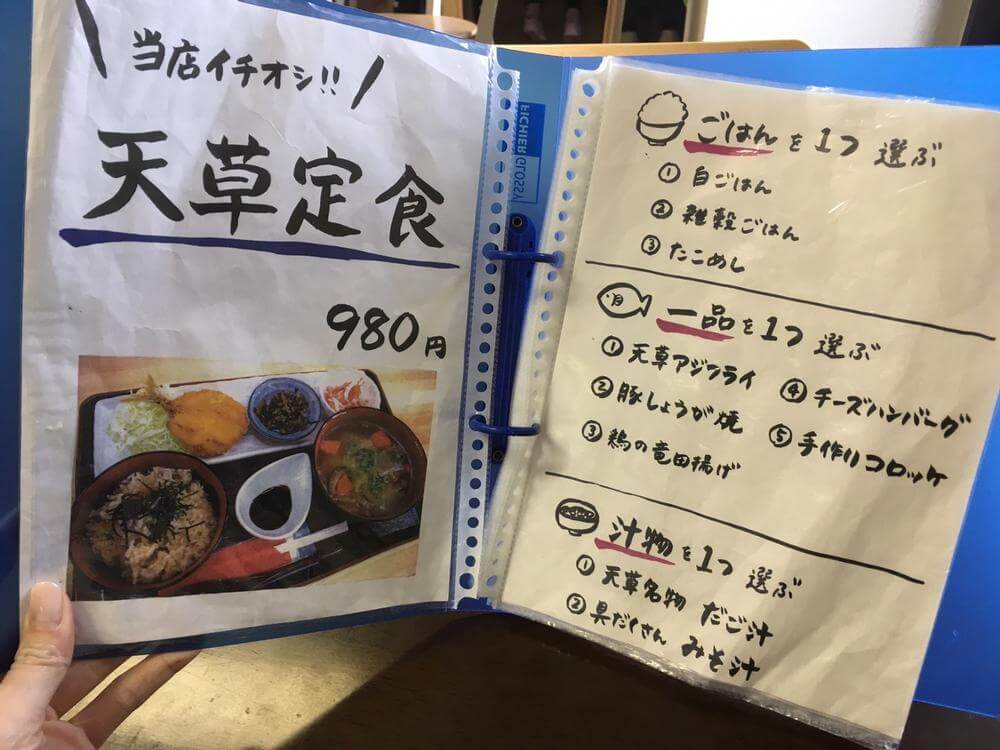 当店イチオシ!!
天草定食
980円
FICHIER GLOSSY
ごはんを1つ選ぶ
① 白ごはん
② 雑穀ごはん
③ たこめし
一品を1つ選ぶ
① 天草アジフライ
② 豚しょうが焼
③ 鶏の竜田揚げ
④ チーズハンバーグ
⑤ 手作りコロッケ
汁物を1つ選ぶ
① 天草名物 だご汁
② 具だくさん みそ汁